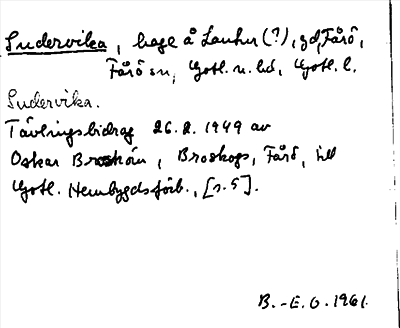 Sudervika, hage å Lauhur (?), gd, Fårö,
Fårö sn, Gotl. n. hd, Gotl. l.
Sudervika.
Tävlingsbidrag 26.2.1949 av
Oskar Broskom, Broskogs, Fårö, till
Gotl. Hembygdsförb., [s. 5].
B.-E. O. 1961.